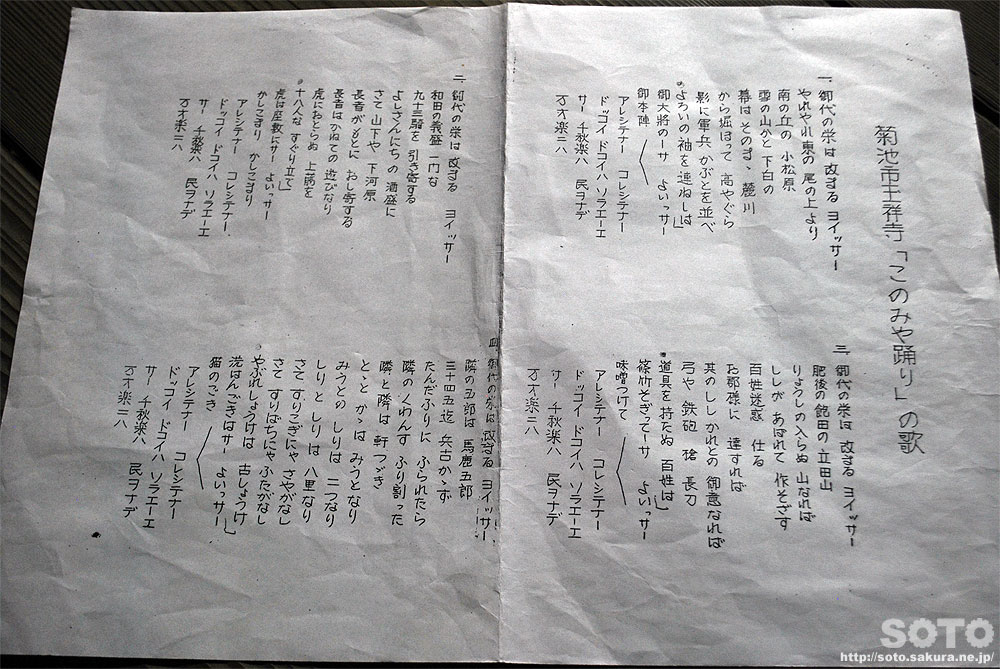 菊池市玉祥寺「このみや踊り」の歌
一、御代の栄は 改まる ヨイッサー
やれやれ東の 尾の上より
南の丘の 小松原
雪の山かと 下白の
幕はそのまゝ 麓川
から堀ほって 高やぐら
影に軍兵 かぶとを並べ
よろいの袖を 連ねしは」
御大將のーサ よいっサー
御本陣
アレシテナー コレシテナー
ドッコイ ドコイハ ソラエーエ
サー 千秋楽ハ 民ヲナデ
万才楽ニハ
二、御代の栄は 改まる ヨイッサー
和田の義盛 一門な
九十三騎を 引き寄する
よしさんにちの 酒盛に
さて山下や 下河原
長者がもとに おし寄する
長者はかねての 遊びなり
虎におとらぬ 上﨟を
十八人な すぐり立て」
虎は座敷にサー よいっサー
かしこまり かしこまり
アレシテナー コレシテナー
ドッコイ ドコイハ ソラエーエ
サー 千秋楽ハ 民ヲナデ
万才楽ニハ
三、御代の栄は 改まる ヨイッサー
肥後の銘田の 立田山
りょうしの入らぬ 山なれば
ししが あばれて 作そざす
百姓迷惑 仕る
お郡様に 達すれば
其のししかれとの 御意なれば
弓や 鉄砲 槍 長刀
道具を持たぬ 百姓は」
篠竹そぎてーサ よいっサー
味噌つけて
アレシテナー コレシテナー
ドッコイ ドコイハ ソラエーエ
サー 千秋楽ハ 民ヲナデ
万才楽ニハ
四、御代の栄は 改まる ヨイッサー
隣の五郎は 馬鹿五郎
三十四五迄 兵古かゝず
たんだふりに ふられたら
隣のくわんす ふり割った
隣と隣は 軒つゞき
とゝとかゝは みうとなり
みうとの しりは 二つなり
しりと しりは 八里なり
さて すりこぎにゃ さやがなし
さて すりばちにゃ ふたがなし
やぶれしょうけは 古しょうけ」
洗はんごきはサー よいっサー
猫のごき
アレシテナー コレシテナー
ドッコイ ドコイハ ソラエーエ
サー 千秋楽ハ 民ヲナデ
万才楽ニハ
SOTO
http://soto.sakura.ne.jp/